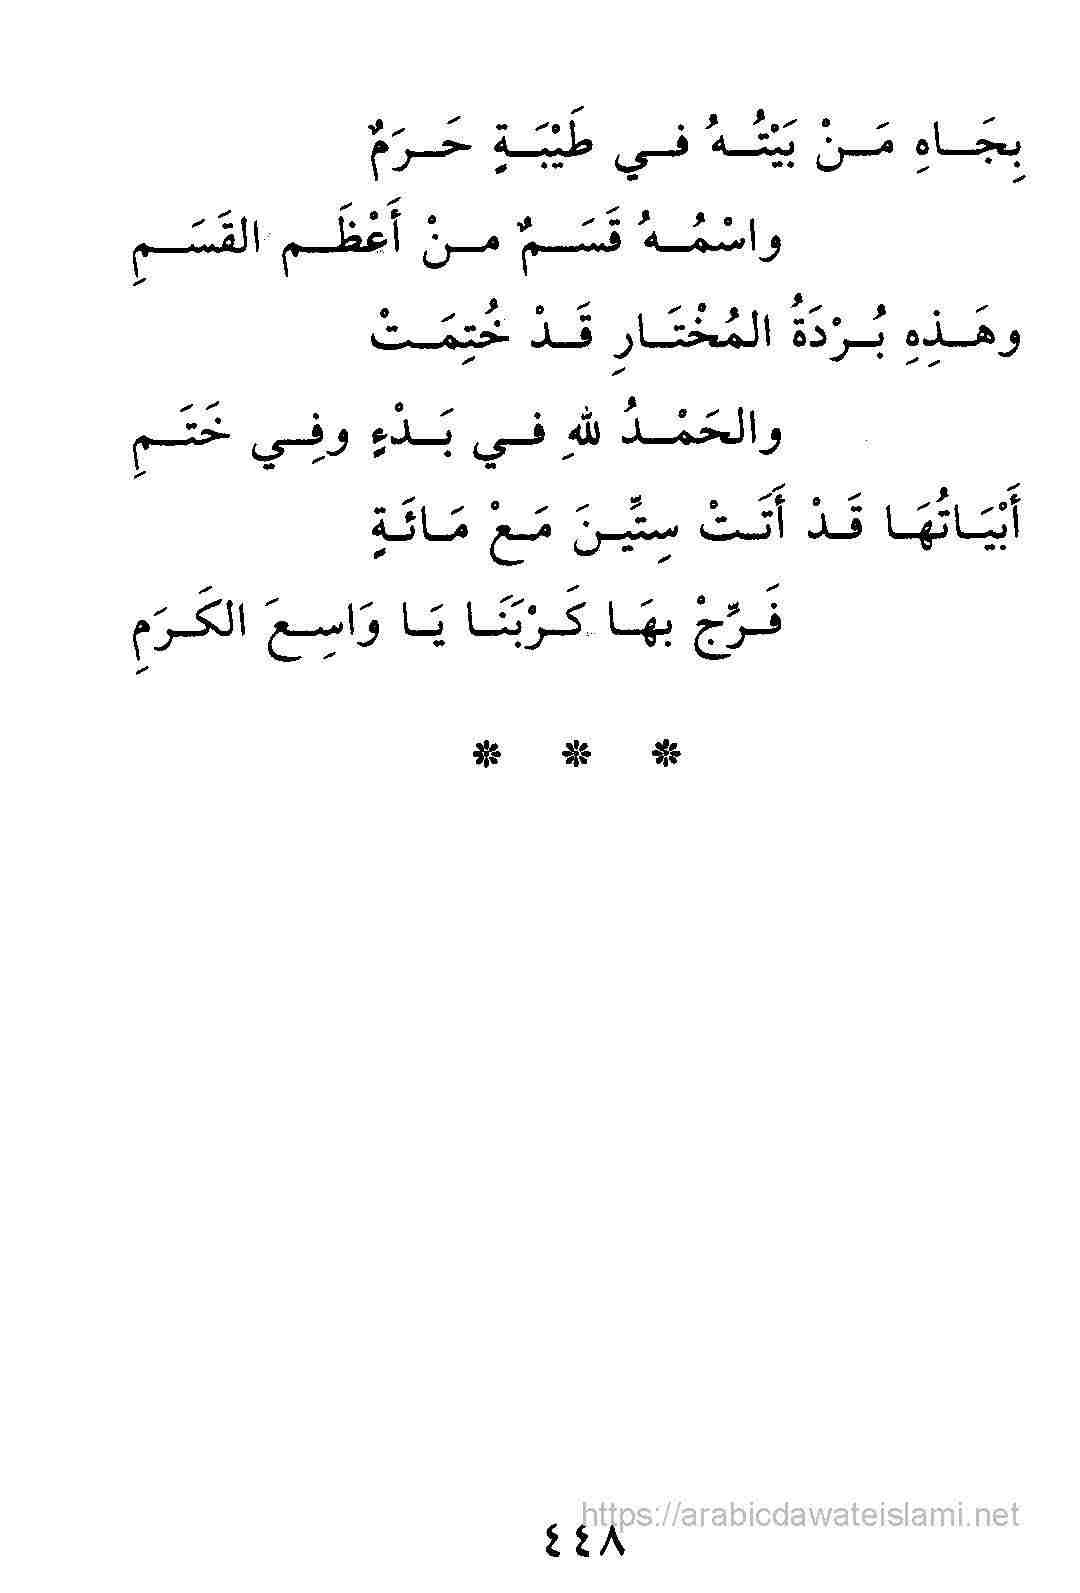 بِجَاهِ مَنْ بَيْتُهُ في طَيْبَةٍ حَرَمٌ
واسْمُهُ قَسَمٌ منْ أَعْظَم القَسَمِ
وهَذِهِ بُرْدَةُ المُخْتَارِ قَدْ خُتِمَتْ
والحَمْدُ للهِ في بَدْءٍ وفِي خَتَمِ
أَبْيَاتُهَا قَدْ أَتَتْ سِتِّينَ مَعْ مَائَةٍ
فَرِّجْ بهَا كَرْبَنَا يَا وَاسِعَ الكَرَمِ
* * *
https://arabicdawateislami.net
٤٤٨